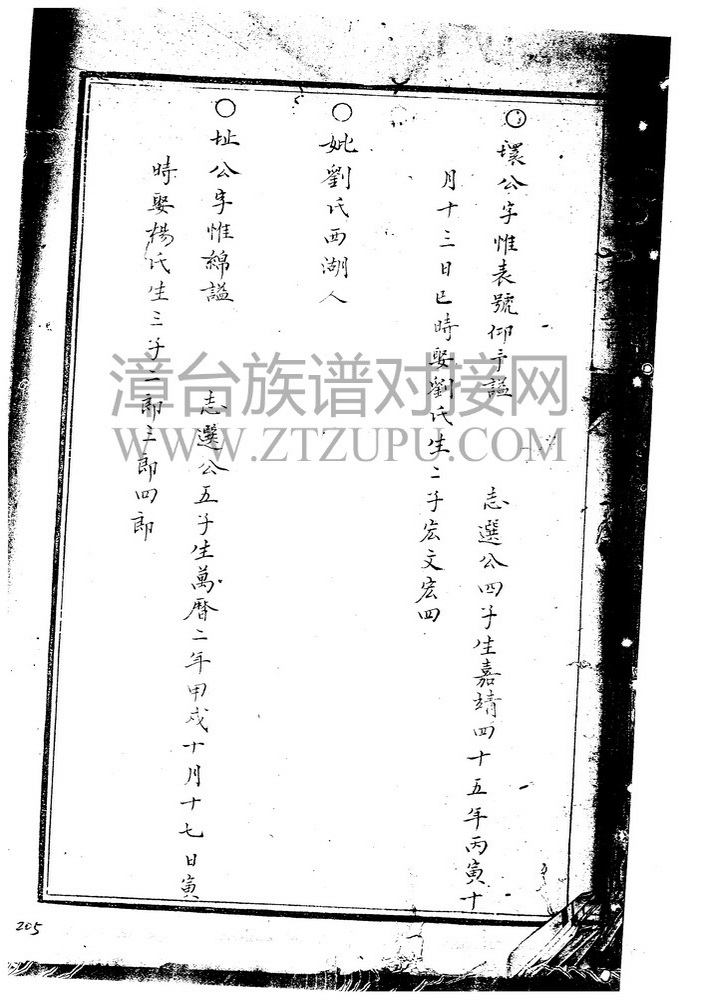 ○環公字惟表號仰亍謚 志選公四子生嘉靖四十五年丙寅十
月十三日巳時娶劉氏生二子宏文宏四
○妣劉氏西湖人
○址公字惟綿謚 志選公五子生萬曆二年甲戌十月十七日寅
時娶楊氏生三子二郎三郎四郎
漳台族谱对接网
WWW.ZTZUPU.COM
205